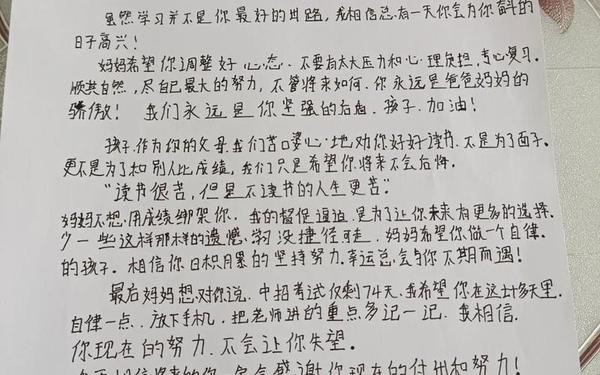 虽然学习并不是你最好的出路，我相信总有一天你会为你奋斗的
日子高兴！
妈妈希望你调整好心态，不要有太大压力和心理负担，专心复习。
顺其自然，尽自己最大的努力，不管将来如何，你永远是爸爸妈妈的
骄傲！我们永远是你坚强的后盾，孩子，加油！
孩子，作为你的父母，我们苦口婆心地劝你好好读书，不是为了面子。
更不是为了和别人比成绩，我们只是希望你将来不会后悔。
“读书很苦，但是不读书的人生更苦”。
妈妈不想用成绩绑架你，我的督促逼迫，是为了让你未来有更多的选择，
少一些这样那样的遗憾，学习没捷径可走，妈妈希望你做一个自律
的孩子。相信你日积月累的坚持努力，幸运总会与你不期而遇！
最后妈妈想对你说，中招考试仅剩74天，我希望你在这七十多天里，
自律一点，放下手机，把老师讲的重点多记一记，我相信
你现在的努力，不会让你失望。
相信将来的你，会感谢你现在的付出和努力！